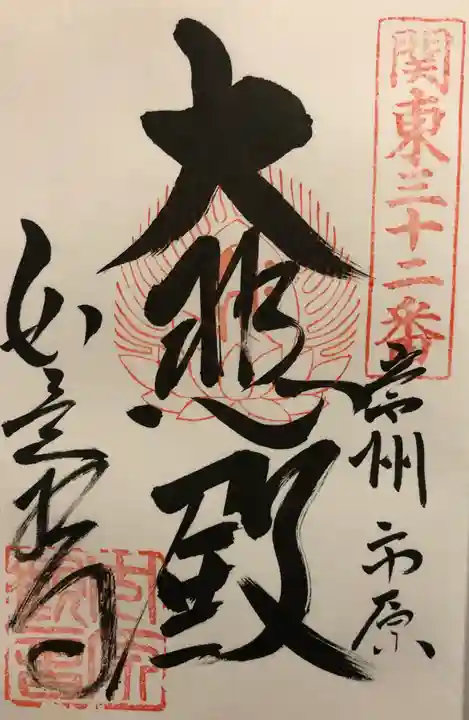 関東三十二番
常州 市原
大悲殿
如意輪寺